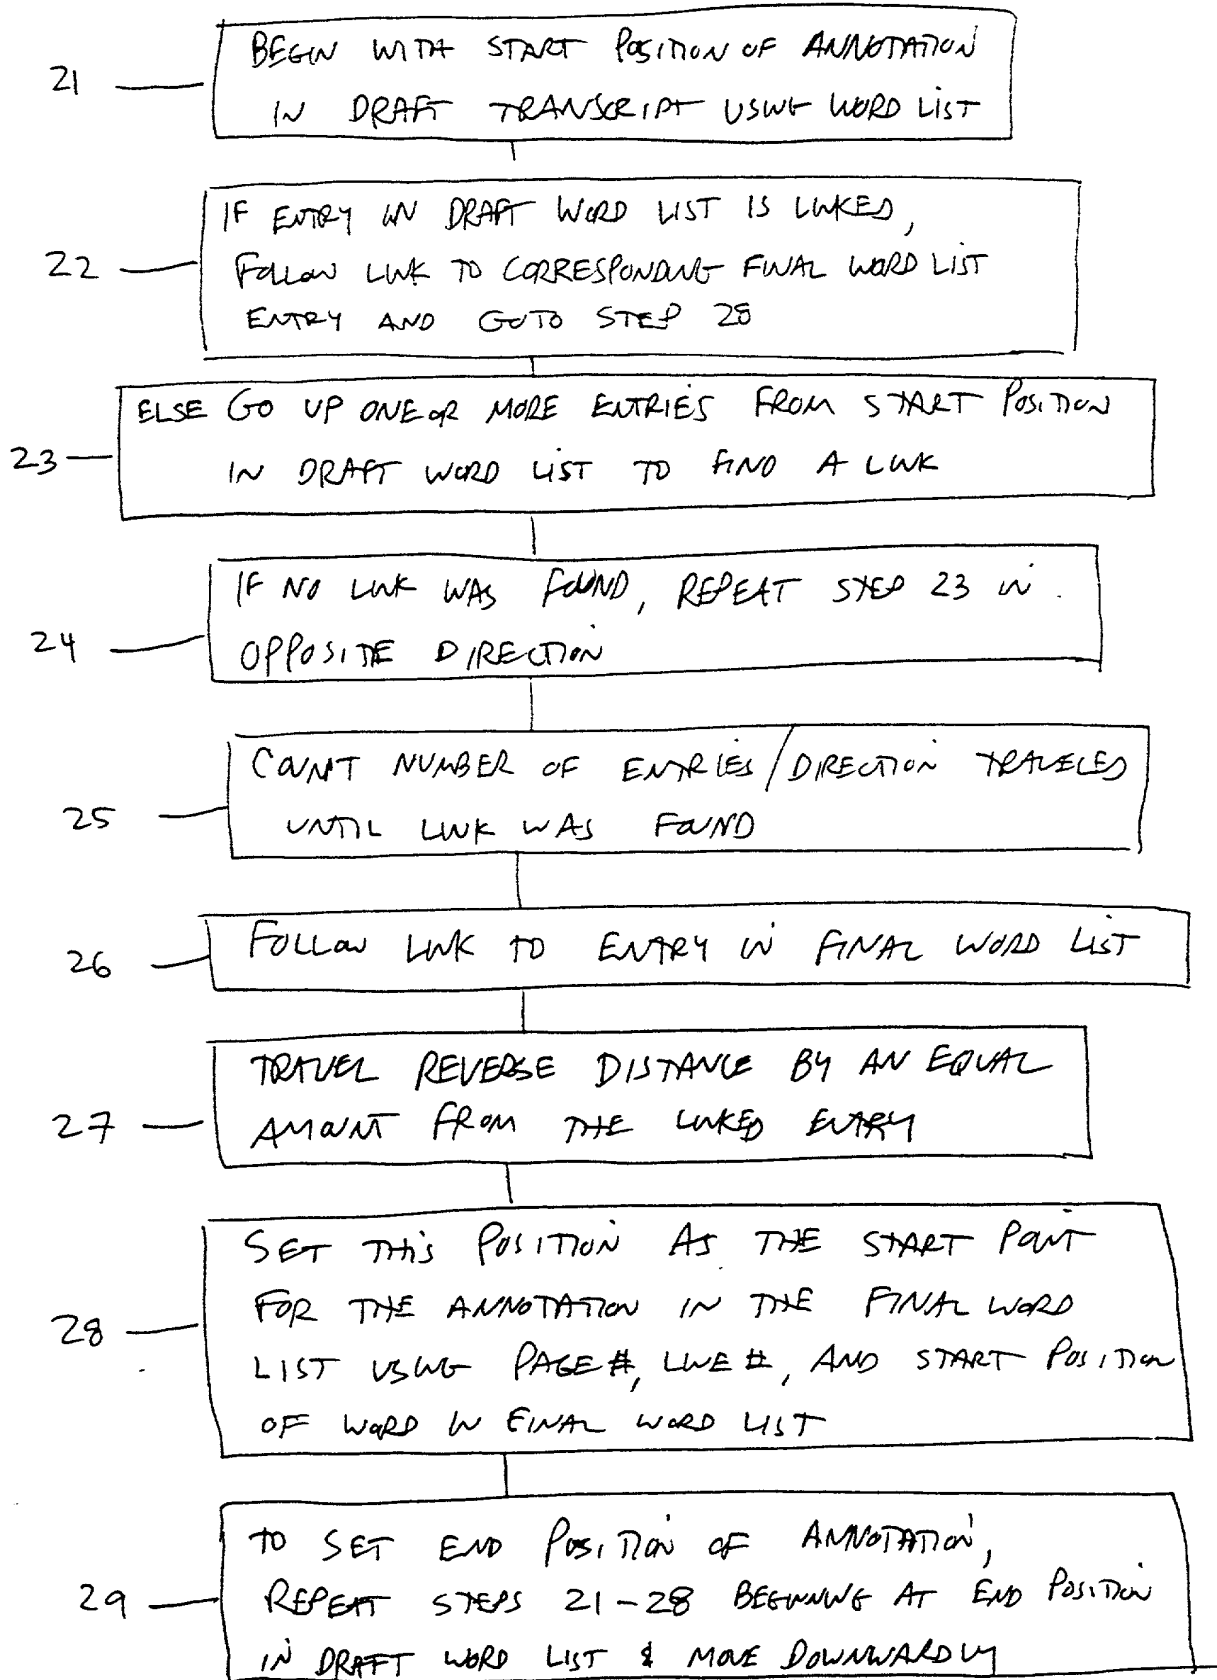 21
BEGIN WITH START POSITION OF ANNOTATION
IN DRAFT TRANSCRIPT USING WORD LIST
22
IF ENTRY IN DRAFT WORD LIST IS LINKED,
FOLLOW LINK TO CORRESPONDING FINAL WORD LIST
ENTRY AND GOTO STEP 28
23
ELSE GO UP ONE OR MORE ENTRIES FROM START POSITION
IN DRAFT WORD LIST TO FIND A LINK
24
IF NO LINK WAS FOUND, REPEAT STEP 23 IN
OPPOSITE DIRECTION
25
COUNT NUMBER OF ENTRIES/DIRECTION TRAVELED
UNTIL LINK WAS FOUND
26
FOLLOW LINK TO ENTRY IN FINAL WORD LIST
27
TRAVEL REVERSE DISTANCE BY AN EQUAL
AMOUNT FROM THE LINKED ENTRY
28
SET THIS POSITION AS THE START POINT
FOR THE ANNOTATION IN THE FINAL WORD
LIST USING PAGE #, LINE #, AND START POSITION
OF WORD IN FINAL WORD LIST
29
TO SET END POSITION OF ANNOTATION,
REPEAT STEPS 21-28 BEGINNING AT END POSITION
IN DRAFT WORD LIST & MOVE DOWNWARDLY